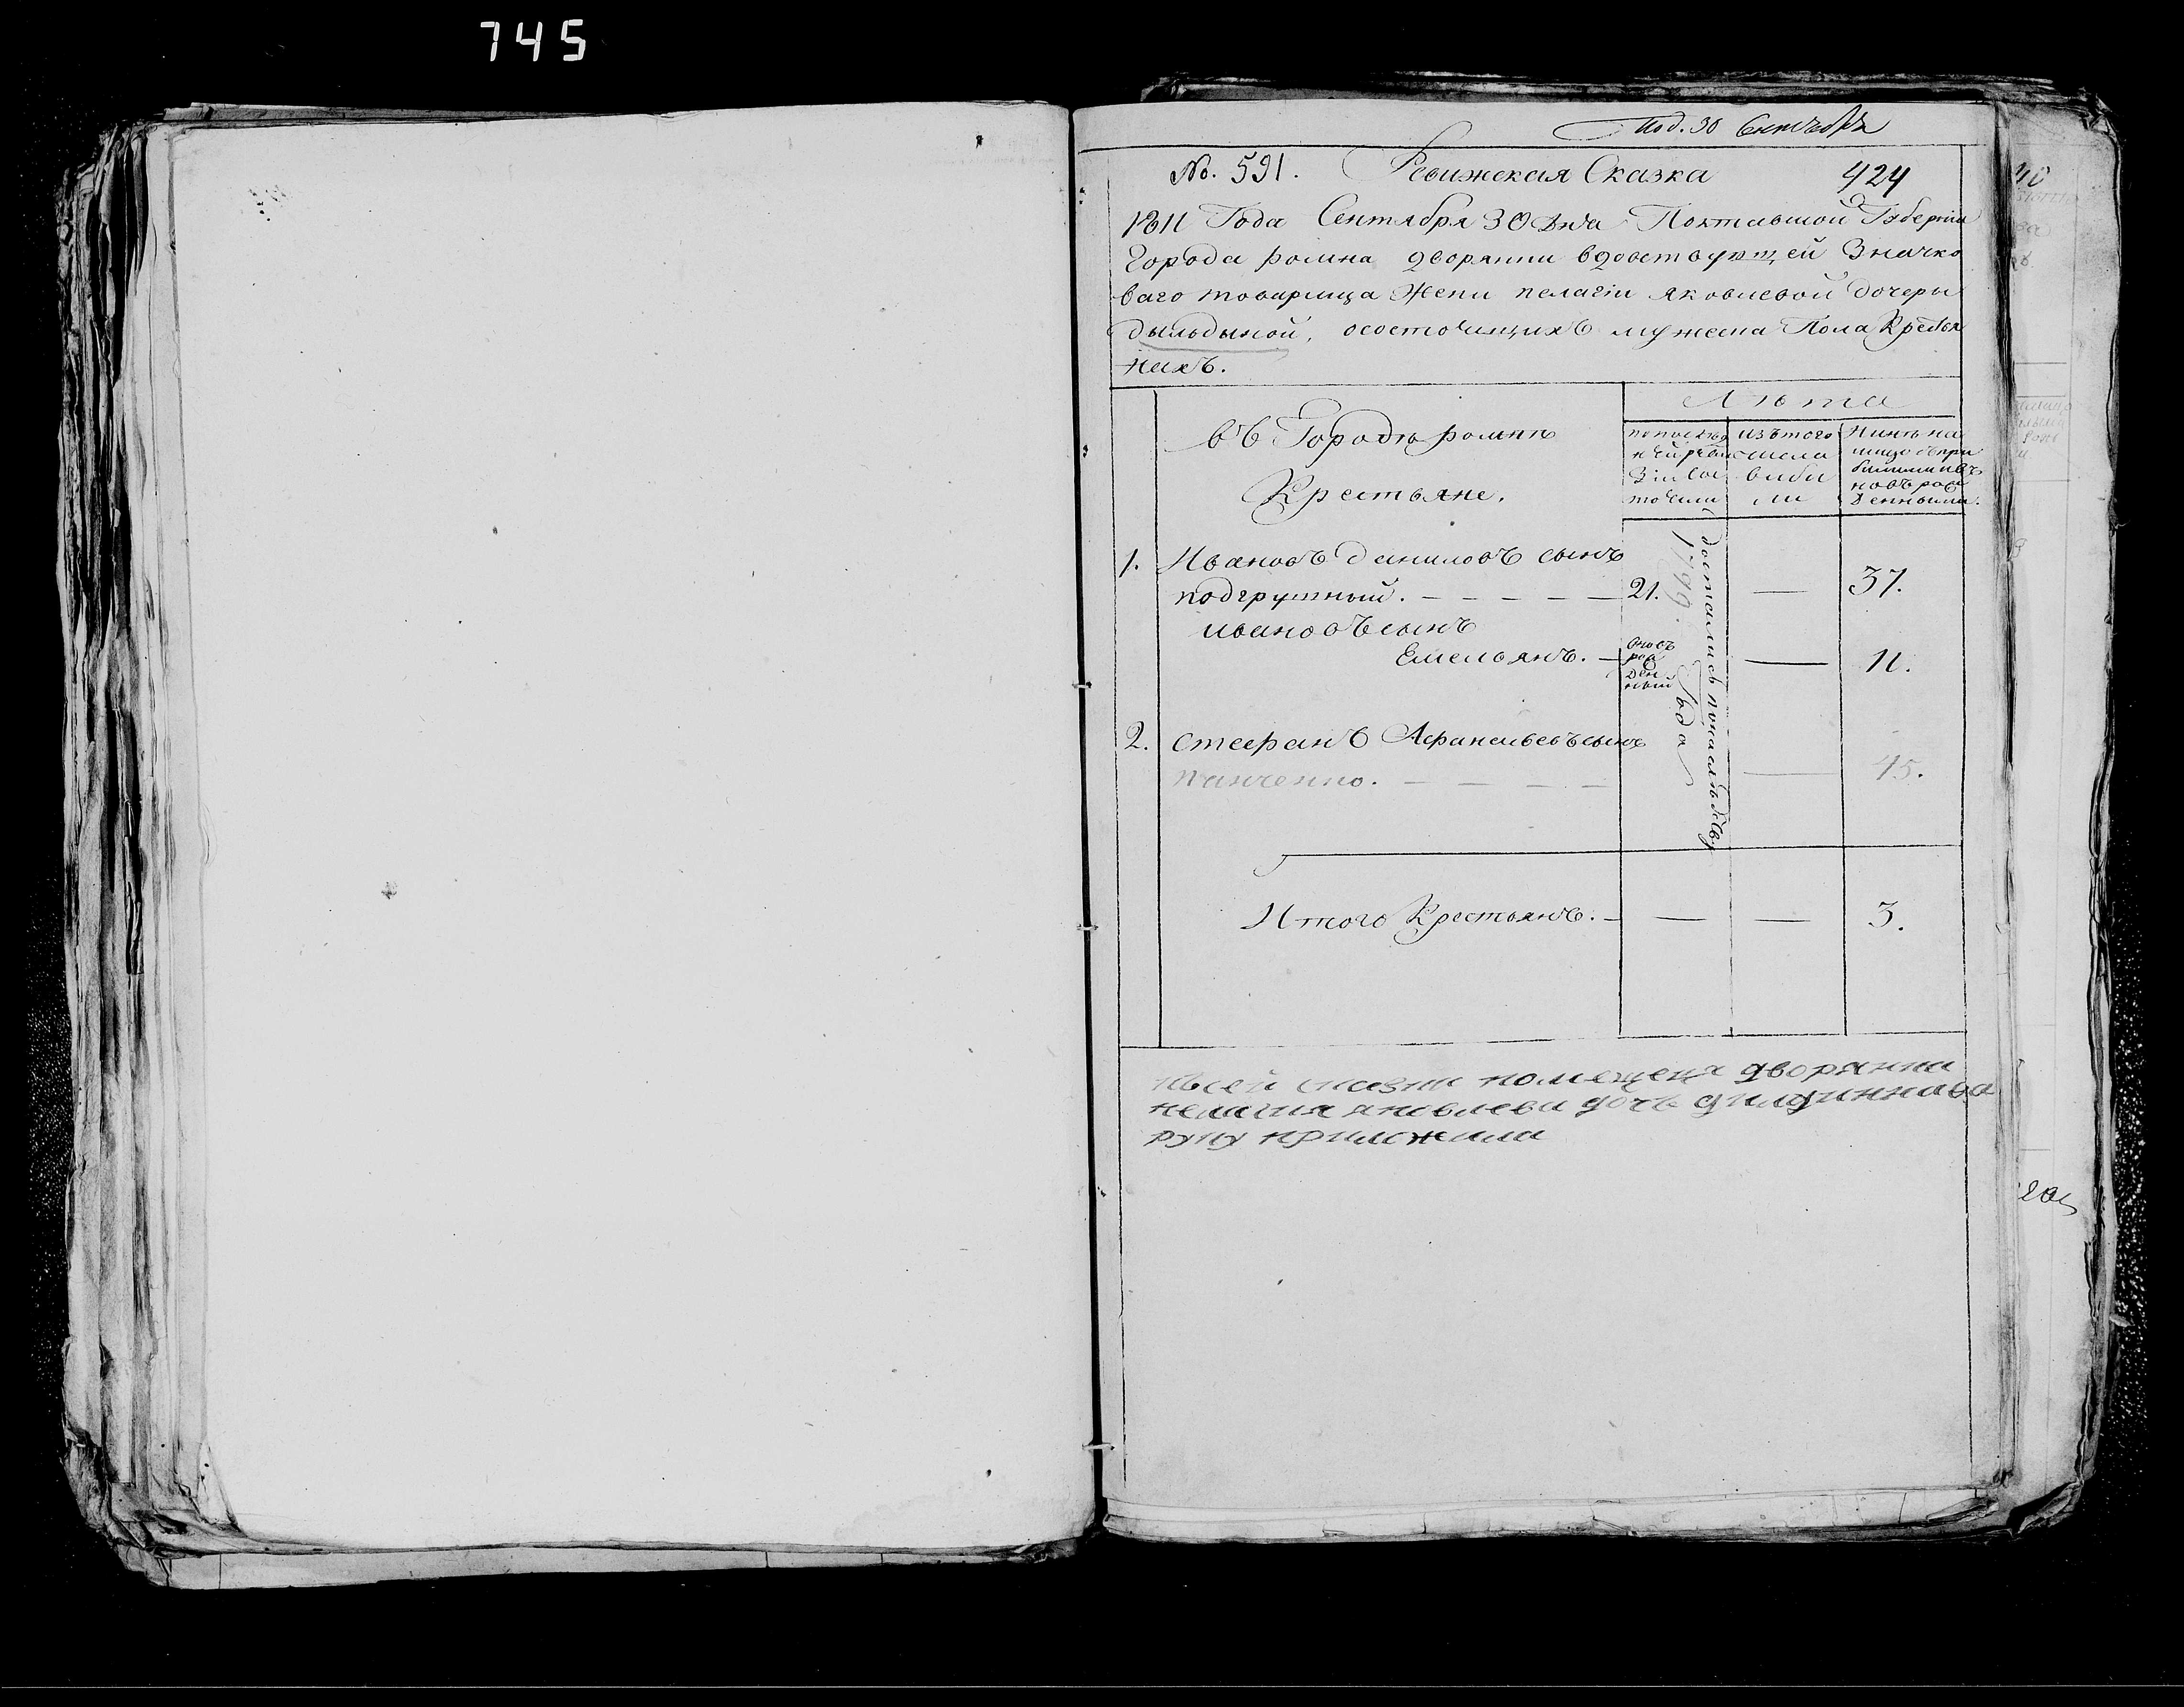 745
Под. 30 Сентября
No. 591. Ревижская Сказка 424
1811 Года Сентября 30 дня Полтавшой Губернии
Города ромна дворянки вдовствующей Значко
ваго товарища Жени пелагіи яковлевой дочери
дильдиной, осостоящихъ мужеска Пола Крестья
нахъ.
Лѣта
въ Городѣ ромнѣ
Крестьяне.
попослѣд
ней ревис
Зіи Сос
тояли
изътого
числа
виби
ли
Нинѣ на
лицо съпри
билимиивъ
новърож
денними.
1. Ивановъ даниловъ сынъ
подгрушный. — — — — — 21. — 37.
ивановъ сынъ
Емельянъ. — вновъ
рож
ден
ный — 11.
достались
1799. года
2. стефанъ Афанасьевъ сынъ
панченко. — — — — — 45.
Итого Крестьянъ. — — — 3.
ксей сказки помещеця дворянка
пелагия яковлева дочь
руку приложила